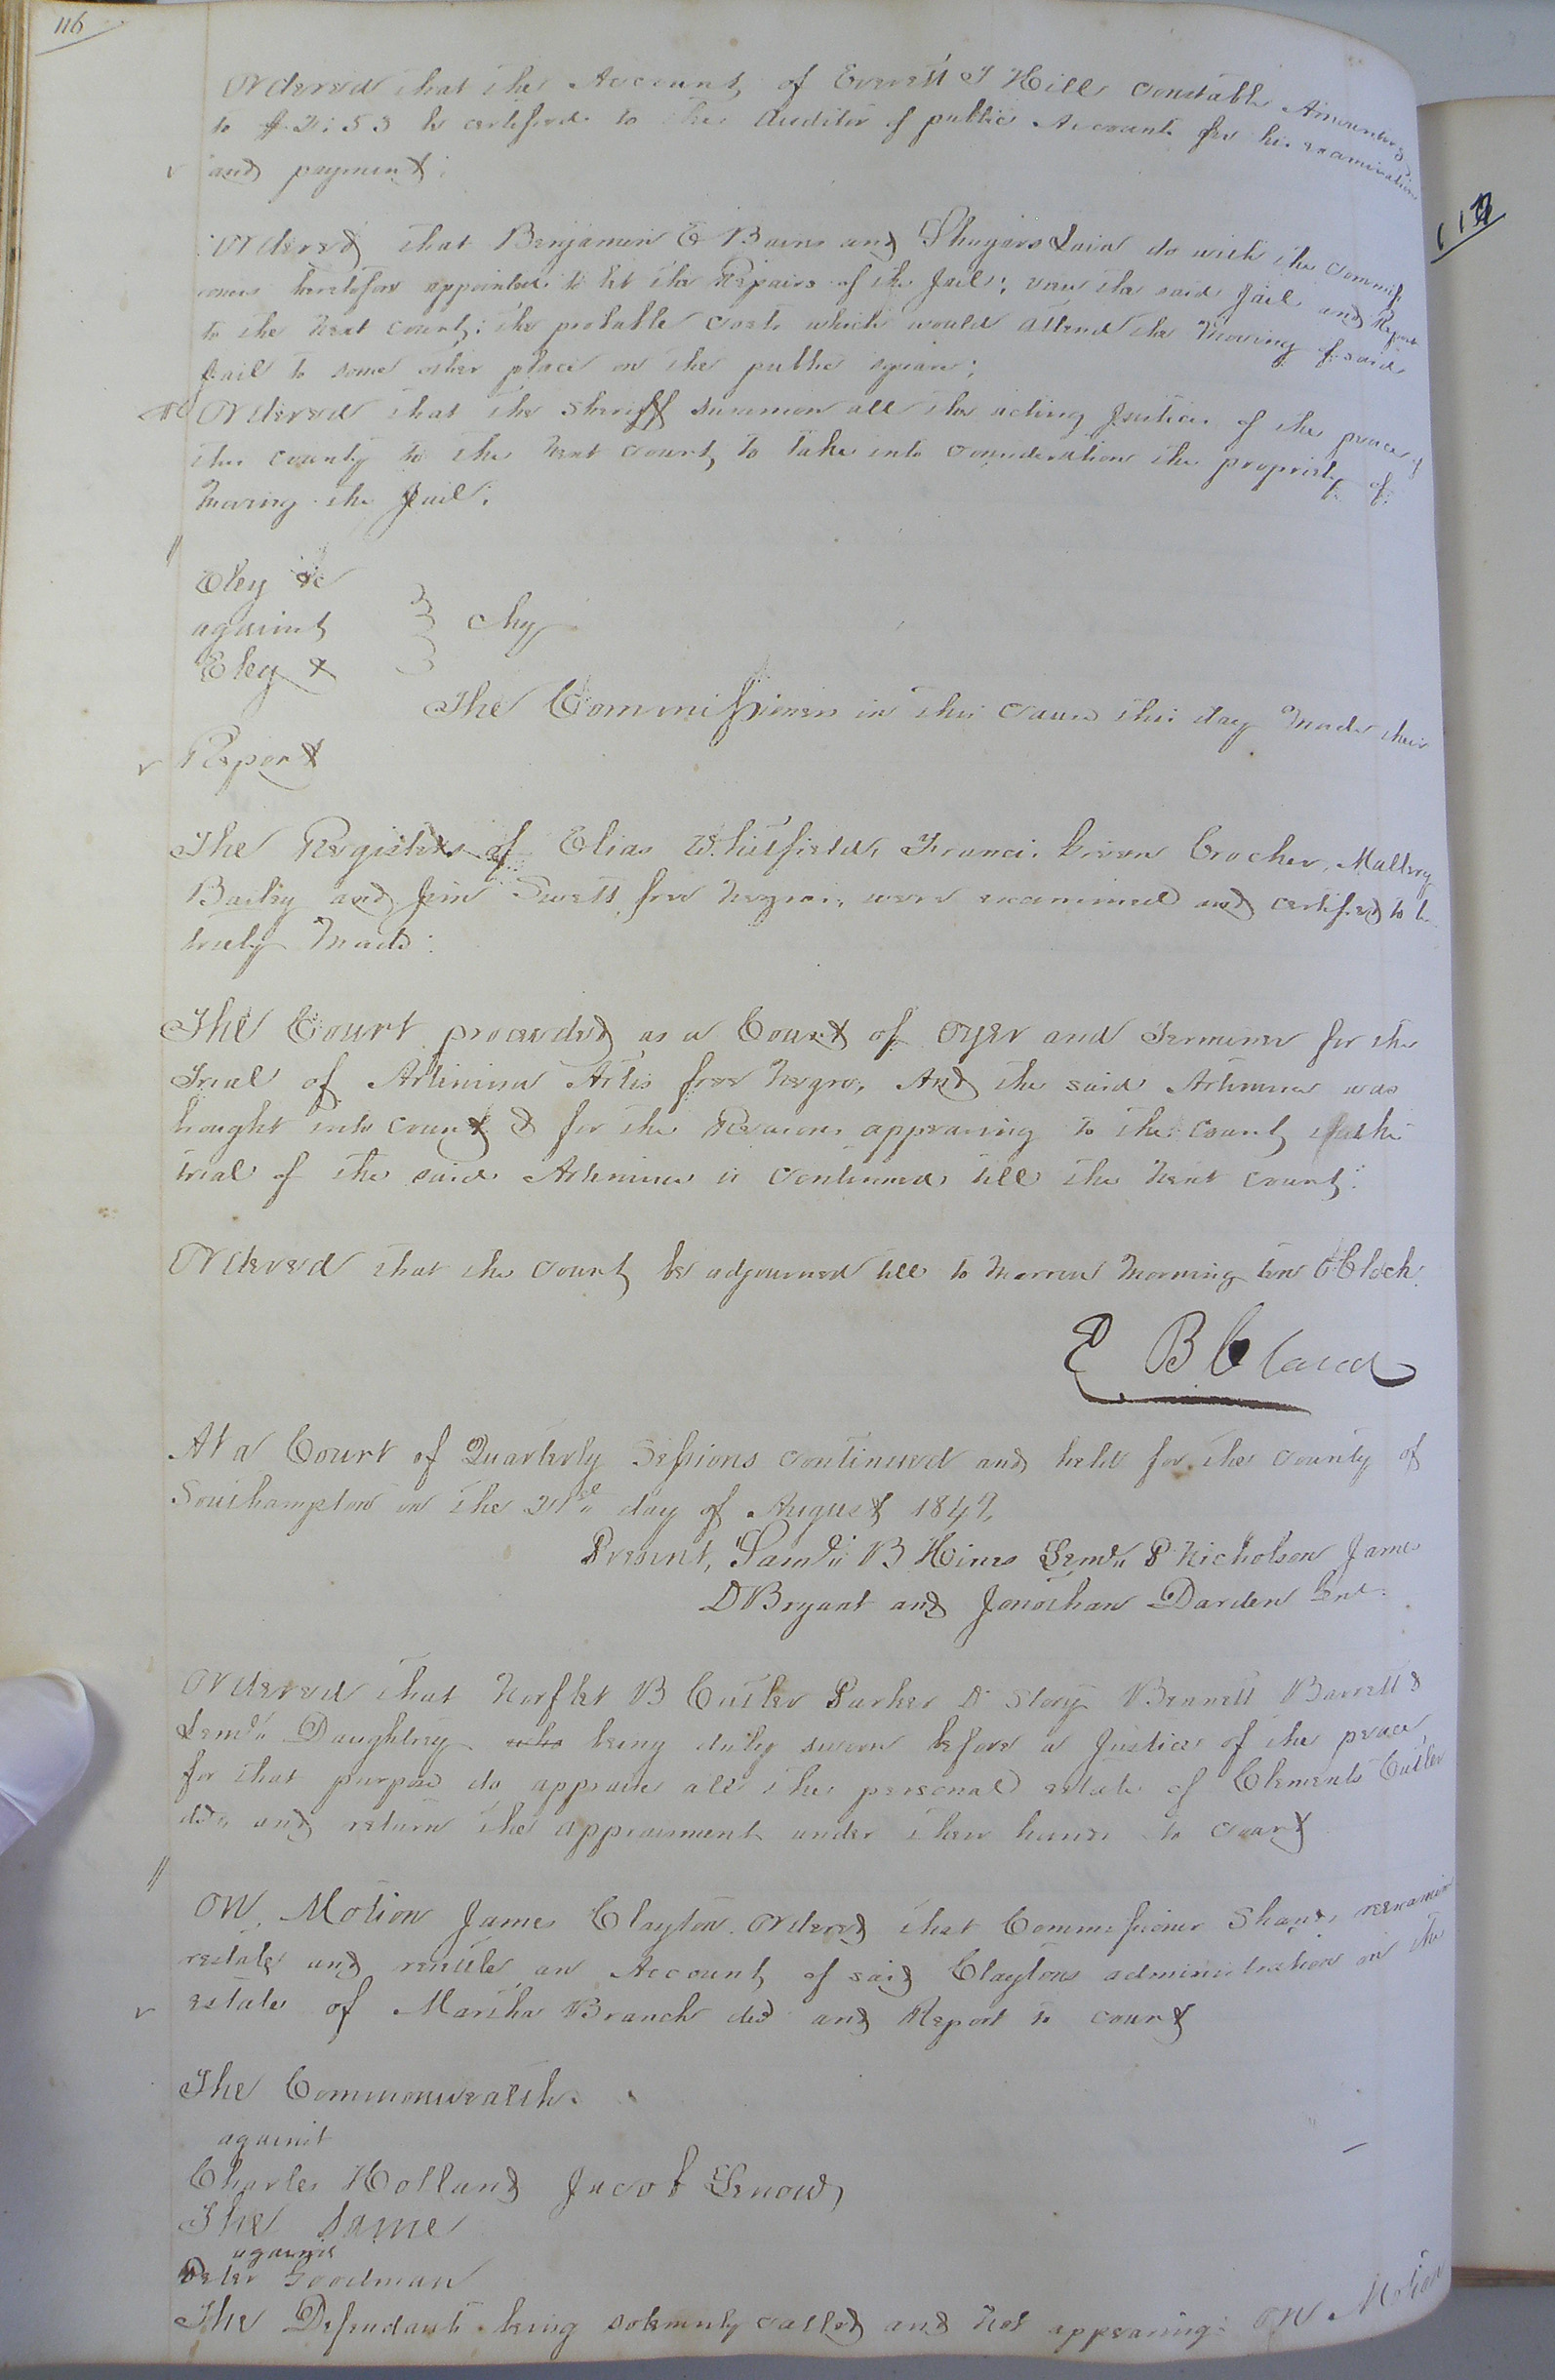 116
Ordered that the Account of Everett J Hill constable Amounting
to $2:53 be certified to the Auditor of public Accounts for his examination
and payment:
Ordered that Benjamin E Barns and Shugars Lain do with the commiss
ioners heretofore appointed to let the Repairs of the Jail; view the said Jail and Report
to the next court; the probable costs which would attend the moving of said
Jail to some other place on the public square;
Ordered that the Sheriff summon all the acting Justices of the peace of
this county to the next court, to take into consideration the propriety of
moving the Jail.
Eley &c
against
Eley &
Chy
The Commissioners in this cause this day made their
Report
The Registers of Elias Whitfield, Francis Crocher, Mallory
Bailey and Jim Swett free negroes, were examined and certified to be
truly made:
The Court proceeded as a Court of Oyer and Terminer for the
Trial of Artimina Artis free negro, And the said Artimina was
brought into court & for the Reasons appearing to the court the
trial of the said Artimina is continued till the next court:
Ordered that the court be adjourned till to morrow morning ten OClock
E B Claud
At a Court of Quarterly Sessions continued and held for the county of
Southampton on the 21st day of August 1847,
Present, Saml B Hines Leml P Nicholson James
D Bryant and Jonathan Darden Gent.
Ordered that Norflet B Cutler Parker D Story Bennett Barrett &
Leml Daughtrey who being duly sworn before a Justice of the peace
for that purpose do appraise all the personal estate of Clements Cutler
decd and return the appraisment under their hands to court
On Motion James Clayton Ordered that Commissioner Shands reexamine
restate and resettle an Account of said Claytons administration on the
estate of Martha Branch decd and Report to court
The Commonwealth
against
Charles Holland Jacob Snow,
The Same
against
Peter Goodman
The Defendants being solemnly called and not appearing: On Motion